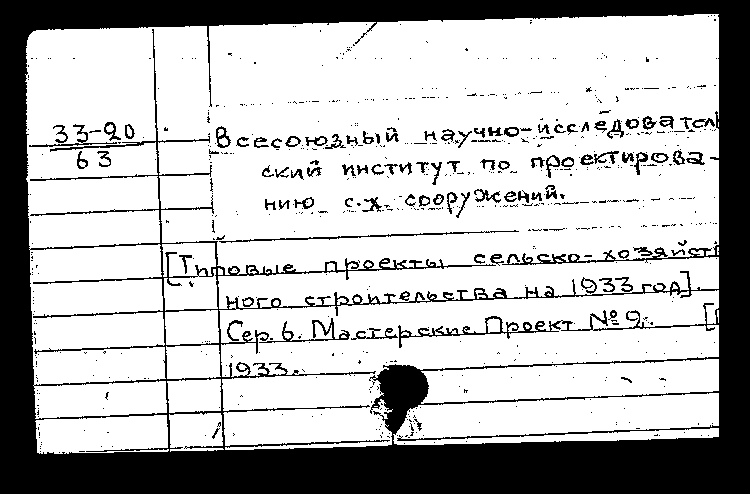 33-20
63
Всесоюзный научно-исследователь
ский институт по проектирова-
нию с.х. сооружений.
[Типовые проекты сельско-хозяйст
ного строительства на 1933 год].
Сер. 6. Мастерские Проект № 2. [
1933.